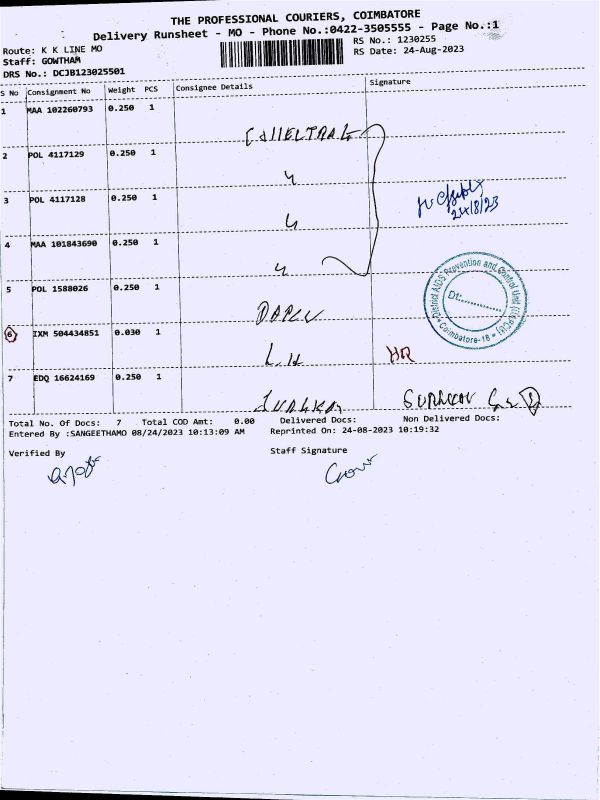 THE PROFESSIONAL COURIERS, COIMBATORE
Delivery Runsheet - MO - Phone No.:0422-3505555 - Page No.:1
Route: K K LINE MO
RS No.: 1230255
Staff: GOWTHAM
RS Date: 24-Aug-2023
DRS No.: DCJB123025501
S No Consignment No Weight PCS Consignee Details Signature
1 MAA 102260793 0.250 1
2 POL 4117129 0.250 1
3 POL 4117128 0.250 1
24/8/23
4 MAA 101843690 0.250 1
5 POL 1588026 0.250 1
District AIDS Prevention and Control Unit
Dt:............
Coimbatore-18
6 IXM 504434851 0.030 1
L.H HR
7 EDQ 16624169 0.250 1
Total No. Of Docs: 7 Total COD Amt: 0.00 Delivered Docs: Non Delivered Docs:
Entered By :SANGEETHAMO 08/24/2023 10:13:09 AM Reprinted On: 24-08-2023 10:19:32
Verified By Staff Signature